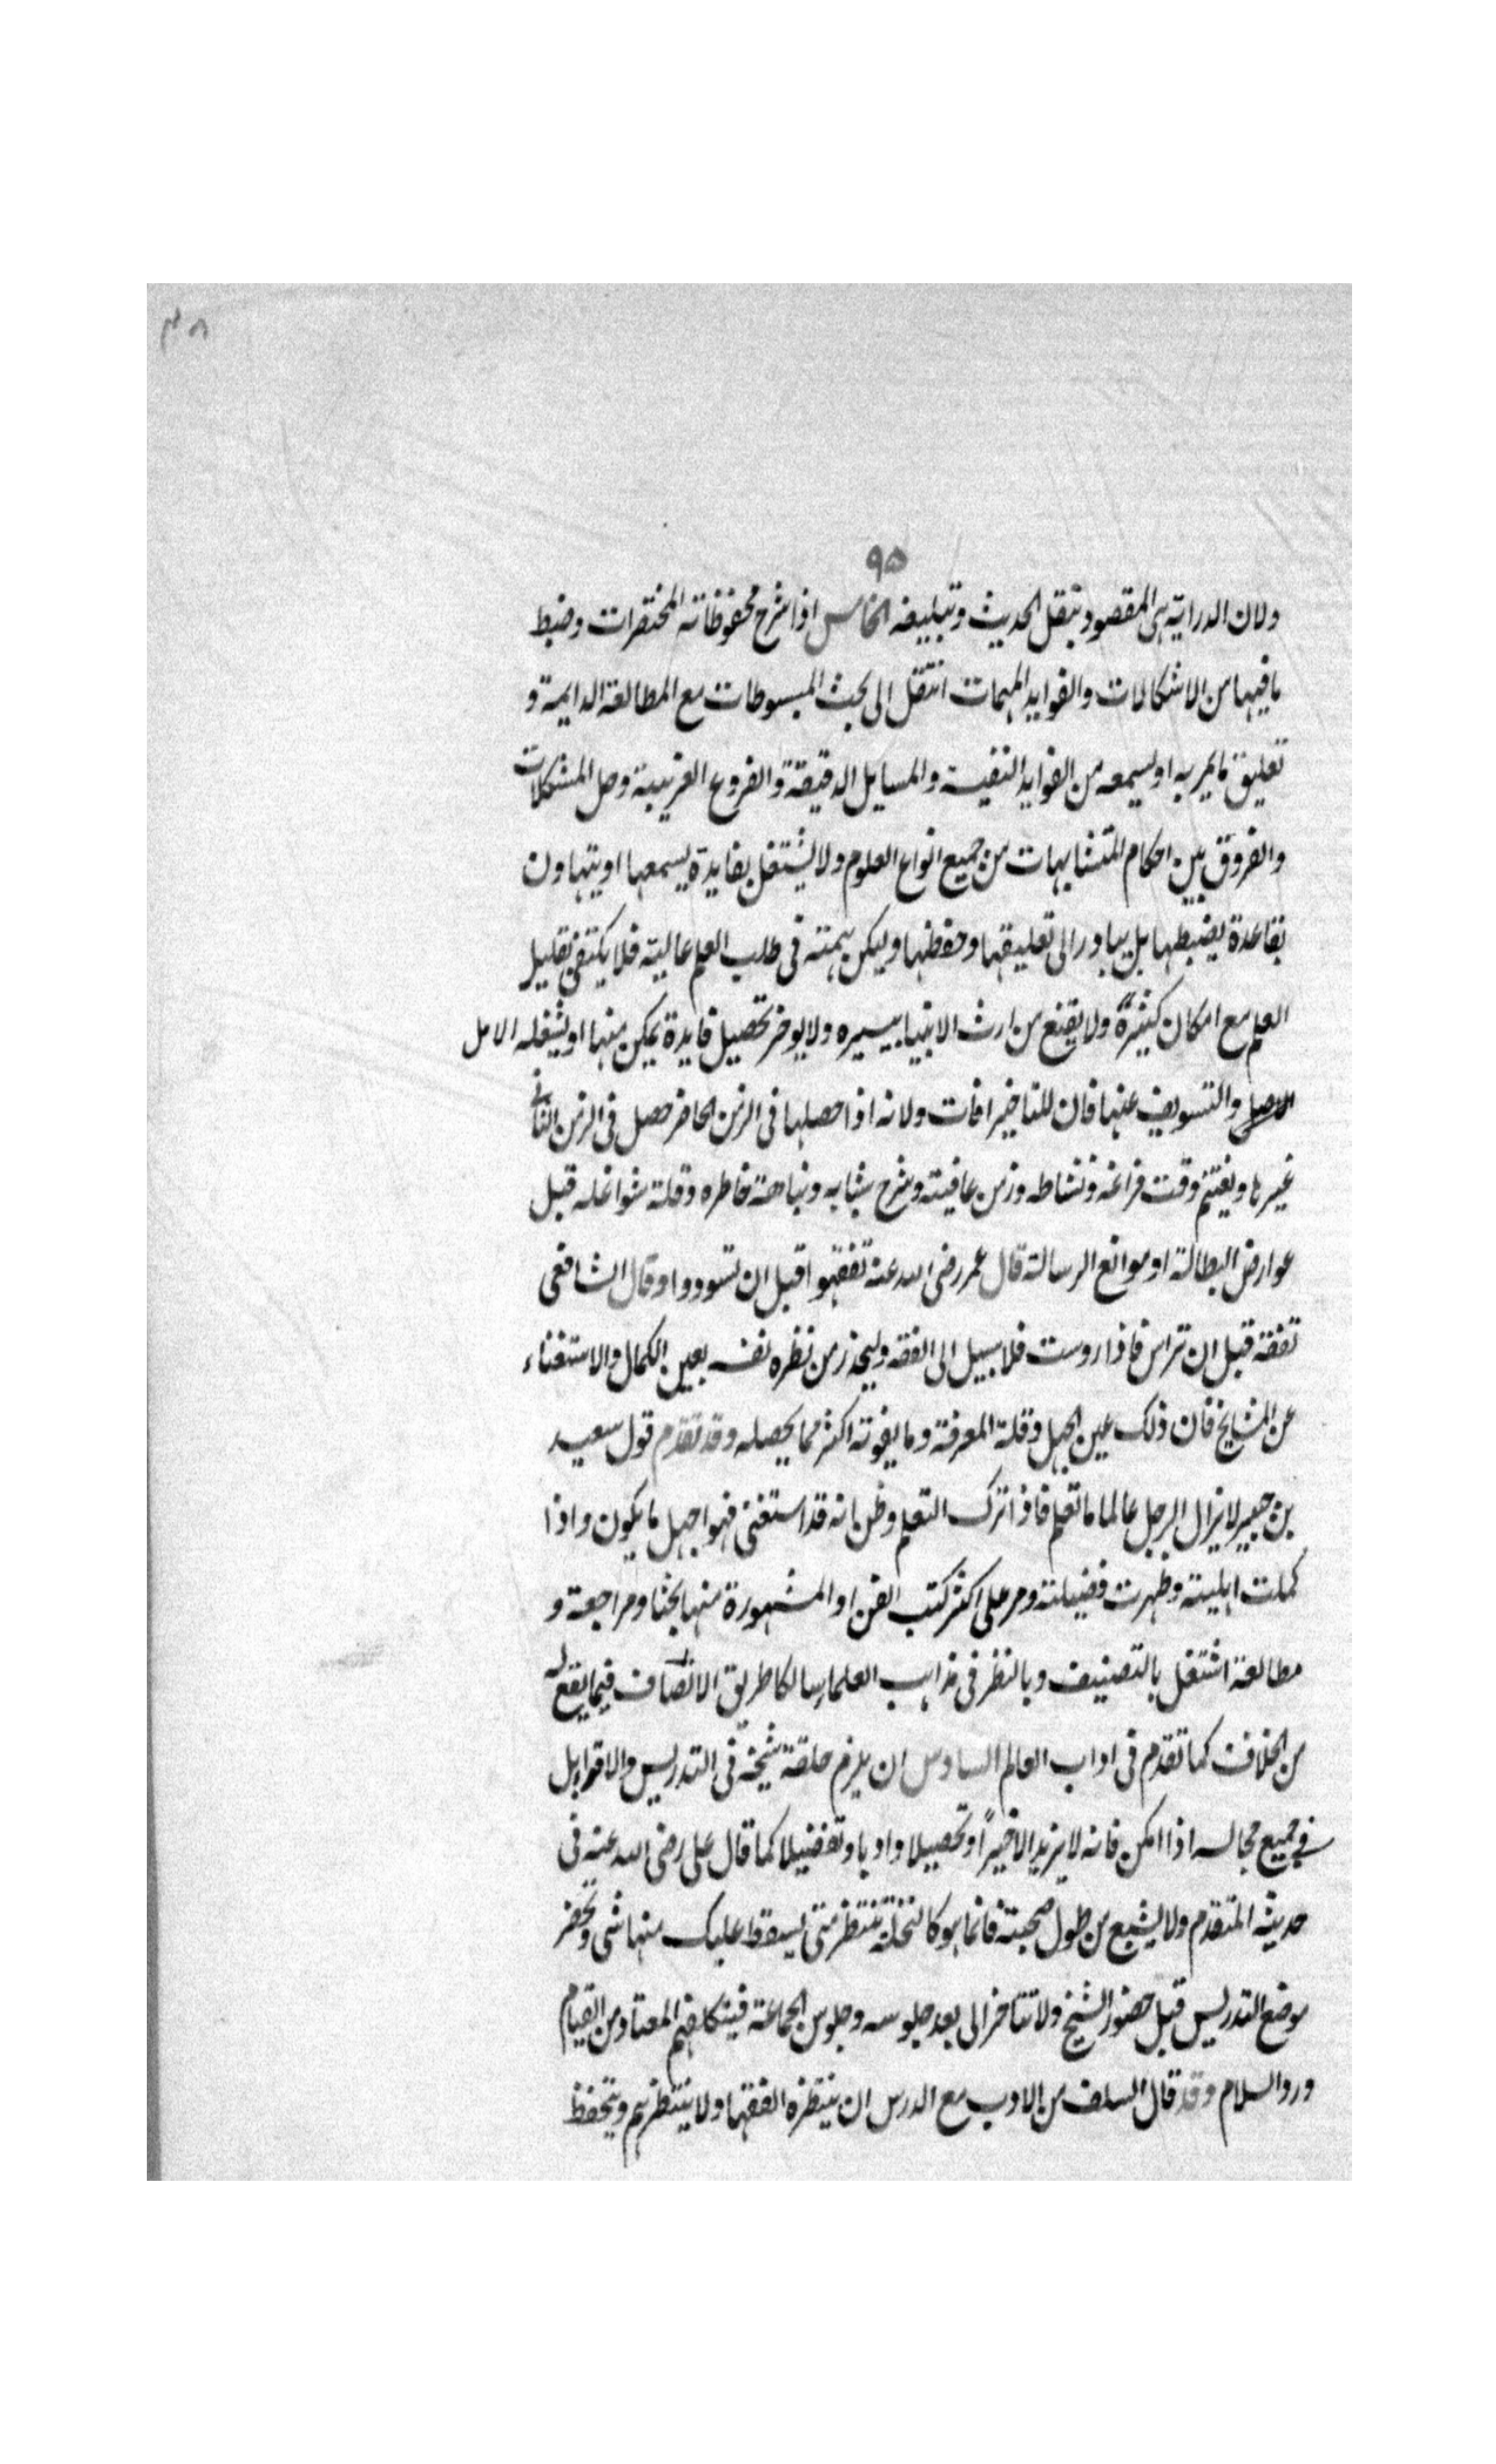 ٣٨
٩٥
ولان الدراية هى المقصود بنقل الحديث وتبليغه الخامس اذا شرح محفوظاته المختصرات وضبط
ما فيها من الاشكالات والفوايد المهمات انتقل الى بحث المبسوطات مع المطالعة الدايمة و
تعليق ما يمر به او يسمعه من الفوايد النفيسة والمسايل الدقيقة والفروع الغريبة وحل المشكلات
والفروق بين احكام المتشابهات من جميع انواع العلوم ولا يشتغل بفايدة يسمعها او يتهاون
بقاعدة يضبطها بل يبادر الى تعليقها وحفظها وليكن همته فى طلب العلم عالية فلا يكتفى بقليل
العلم مع امكان كثيرة ولا يقنع من ارث الانبيا بيسيره ولا يوخر تحصيل فايدة يمكن منها او يشغله الامل
والتسويف عنها فان للتاخير افات ولانه اذا حصلها فى الزمن الحاضر حصل فى الزمن الثانى
غيرها ويغتنم وقت فراغه ونشاطه وزمن عافيته وشرح شبابه ونباهة خاطره وقلة شواغله قبل
عوارض البطالة او موانع الرسالة قال عمر رضى الله عنه تفقهوا قبل ان تسودوا وقال الشافعى
تفقه قبل ان تراس فاذا روست فلا سبيل الى الفقه وليحذر من نظره نفسه بعين الكمال والاستغناء
عن المشايخ فان ذلك عين الجهل وقلة المعرفة وما يفوته اكثر مما يحصله وقد تقدم قول سعيد
بن جبير لا يزال الرجل عالما ما تعلم فاذا ترك التعلم وظن انه قد استغنى فهو اجهل ما يكون واذا
كملت اهليته وظهرت فضيلته ومر على اكثر كتب الفن او المشهورة منها بحثا ومراجعة و
مطالعة اشتغل بالتصنيف وبالنظر فى مذاهب العلما سالكا طريق الانصاف فيما يقع له
من الخلاف كما تقدم فى اداب العالم السادس ان يلزم حلقة شيخه فى التدريس والاقرا بل
فى جميع مجالسه اذا امكن فانه لا يزيد الا خيرًا وتحصيلا وادبا وتفضيلا كما قال على رضى الله عنه فى
حديثه المتقدم ولا يشبع من طول صحبته فانما هو كالنخلة تنتظر متى يسقط عليك منها شى ويحضر
موضع التدريس قبل حضور الشيخ ولا تتاخر الى بعد جلوسه وجلوس الجماعة فيتكلفهم المعتاد من القيام
ورد السلام وقد قال السلف من الادب مع الدرس ان ينتظره الفقها ولا ينتظرهم ويتحفظ